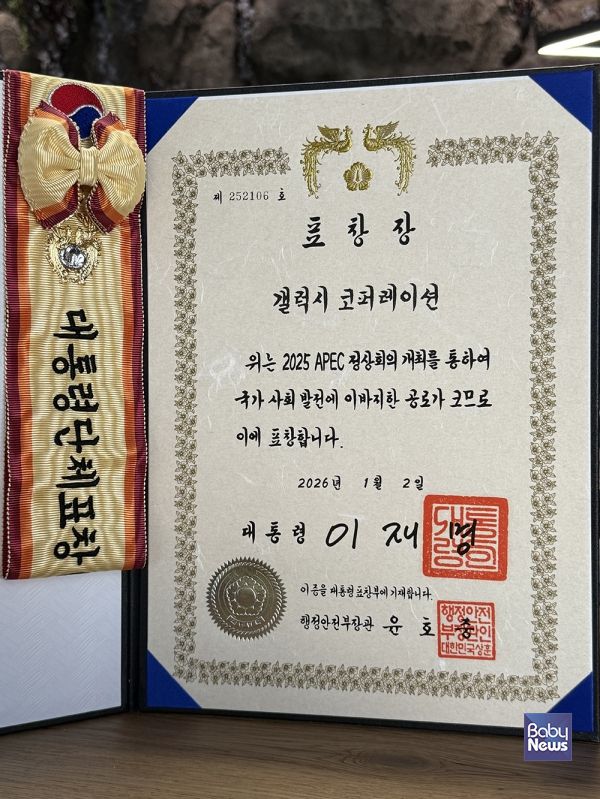 대통령단체표창
제 252106 호
표 창 장
갤럭시 코퍼레이션
위는 2025 APEC 정상회의 개최를 통하여
국가 사회 발전에 이바지한 공로가 크므로
이에 표창합니다.
2026년 1월 2일
대통령 이재명
이 증을 대통령표창부에 기재합니다.
행정안전부장관 윤호중
행정안전
부장관인
대한민국상훈
Baby
News